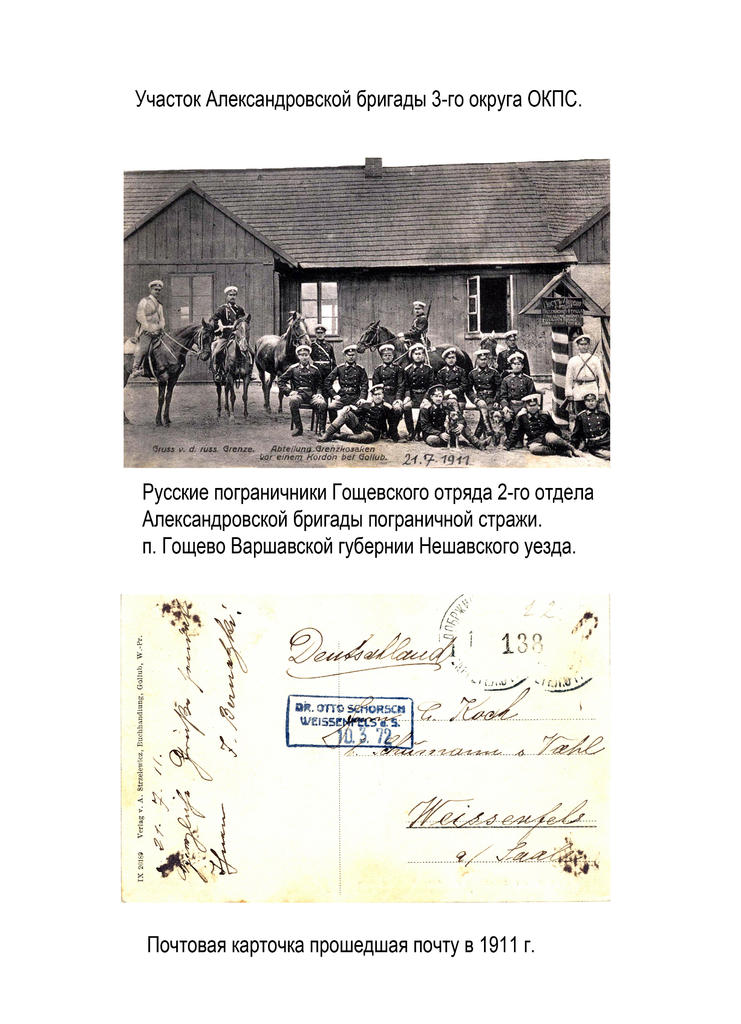 Участок Александровской бригады 3-го округа ОКПС.
Gruss v. d. russ. Grenze. Abteilung Grenzkosaken
vor einem Kordon bei Gollub.
21.7.1911
Русские пограничники Гощевского отряда 2-го отдела
Александровской бригады пограничной стражи.
п. Гощево Варшавской губернии Нешавского уезда.
IX 20189 Verlag v. A. Strzelewicz, Buchhandlung, Gollub, W.-Pr.
21.7.11.
Herzliche Grüße
Deutschland
138
DR. OTTO SCHORSCH
WEISSENFELS a. S.
10. 3. 72
G. Koch
Weissenfels
a/ Saale
Почтовая карточка прошедшая почту в 1911 г.